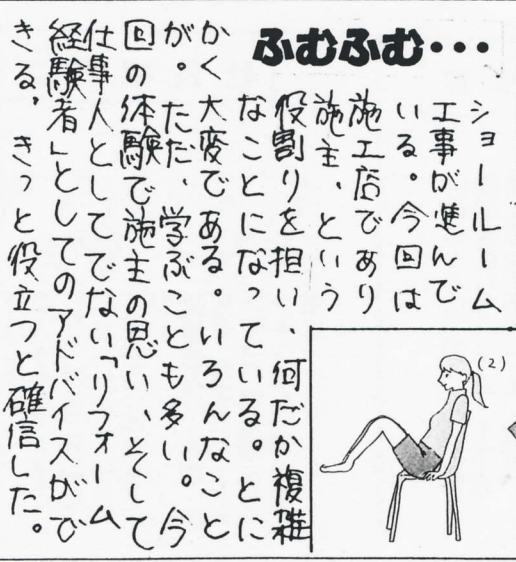 ふむふむ・・・
ショールーム
工事が進んで
いる。今回は
施工店であり
施主、という
役割りを担い、何だか複雑
なことになっている。とに
かく大変である。いろんなこと
が。ただ、学ぶことも多い。今
回の体験で施主の思い、そして
仕事人としてでない「リフォーム
経験者」としてのアドバイスがで
きる。きっと役立つと確信した。
(2)